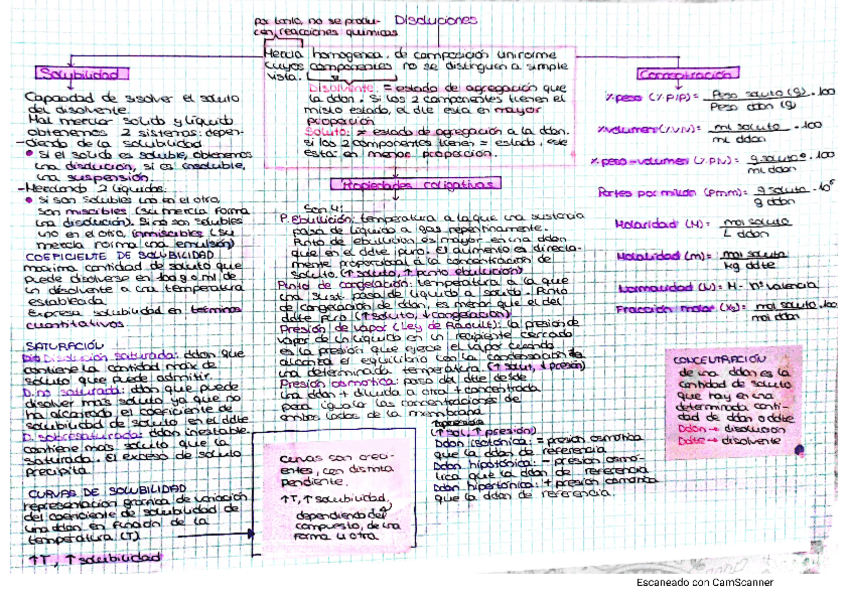 Disoluciones
por tanto, no se produ-
cen reacciones químicas
Mezcla homogenea, de composición uniforme
cuyos componentes no se distinguen a simple
vista.
Disolvente: = estado de agregación que
la ddon. Si los 2 componentes tienen el
mismo estado, el dte está en mayor
proporción
Soluto: = estado de agregación a la ddon.
si los 2 componentes tienen = estado, este
está en menor proporción.
Solubilidad
Capacidad de disolver el soluto
del disolvente.
Mal mezclar solido y líquido
obtenemos 2 sistemas: depen-
diendo de la solubilidad
• Si el solido es soluble, obtenemos
una disolución, si es insoluble,
una suspensión.
-Mezclando 2 líquidos.
• Si son solubles uno en el otro,
son miscibles (su mezcla forma
una disolución). Si no son solubles
uno en el otro, inmiscibles (su
mezcla forma una emulsión)
COEFICIENTE DE SOLUBILIDAD
maxima cantidad de soluto que
puede disolverse en 100 g o ml de
un disolvente a una temperatura
establecida.
Expresa solubilidad en terminos
cuantitativos
SATURACIÓN
Disolución saturada: ddon que
contiene la cantidad max de
soluto que puede admitir.
D. no saturada: ddon que puede
disolver más soluto ya que no
ha alcanzado el coeficiente de
solubilidad de soluto en el ddte
D. sobresaturada: ddon inestable.
contiene más soluto que la
saturada. El exceso de soluto
precipita.
CURVAS DE SOLUBILIDAD
representación gráfica de variación
del coeficiente de solubilidad de
una ddon en función de la
temperatura (T)
↑T, ↑ solubilidad
Propiedades coligativas
Son 4:
P. Ebullición: temperatura a la que una sustancia
pasa de líquido a gas repentinamente.
Punto de ebullición es mayor en una ddon
que en el ddte puro. El aumento es directa-
mente proporcional a la concentración de
soluto. (↑ soluto, ↑ punto ebullición)
Punto de congelación: temperatura a la que
una sust. pasa de líquido a solido. Punto
de congelación de ddon, es menor que el del
ddte puro (↑ soluto, ↓ congelación)
Presión de vapor (Ley de Raoult): la presión de
vapor de un líquido en un recipiente cerrado
es la presión que ejerce el vapor cuando
alcanza el equilibrio con la condensación de
una determinada temperatura (↑ solut, ↓ presión)
Presión osmotica: paso del dte desde
una ddon + diluida a otra + concentrada
para igualar las concentraciones de
ambos lados de la membrana
(↑ sol, ↑ presión)
Ddon isotónica: = presión osmotica
que la ddon de referencia
Ddon hipotónica: - presión osmó-
tica que la ddon de referencia
Ddon hipertónica: + presión osmotica
que la ddon de referencia.
Curvas son creci-
entes, con distinta
pendiente.
↑T, ↑ solubilidad,
dependiendo del
compuesto, de una
forma u otra.
Concentración
% peso (% P/P) = Peso soluto (g) / Peso ddon (g) · 100
% volumen (% V/V) = ml soluto / ml ddon · 100
% peso-volumen (% P/V) = g soluto / ml ddon · 100
Partes por millón (Pmm) = g soluto / g ddon · 10⁶
Molaridad (M) = mol soluto / L ddon
Molalidad (m) = mol soluto / kg ddte
Normalidad (N) = M · nº valencia
Fracción molar (Xs) = mol soluto / mol ddon · 100
CONCENTRACIÓN
de una ddon es la
cantidad de soluto
que hay en una
determinada canti-
dad de ddon o ddte
Ddon → disolución
Ddte → disolvente
Escaneado con CamScanner